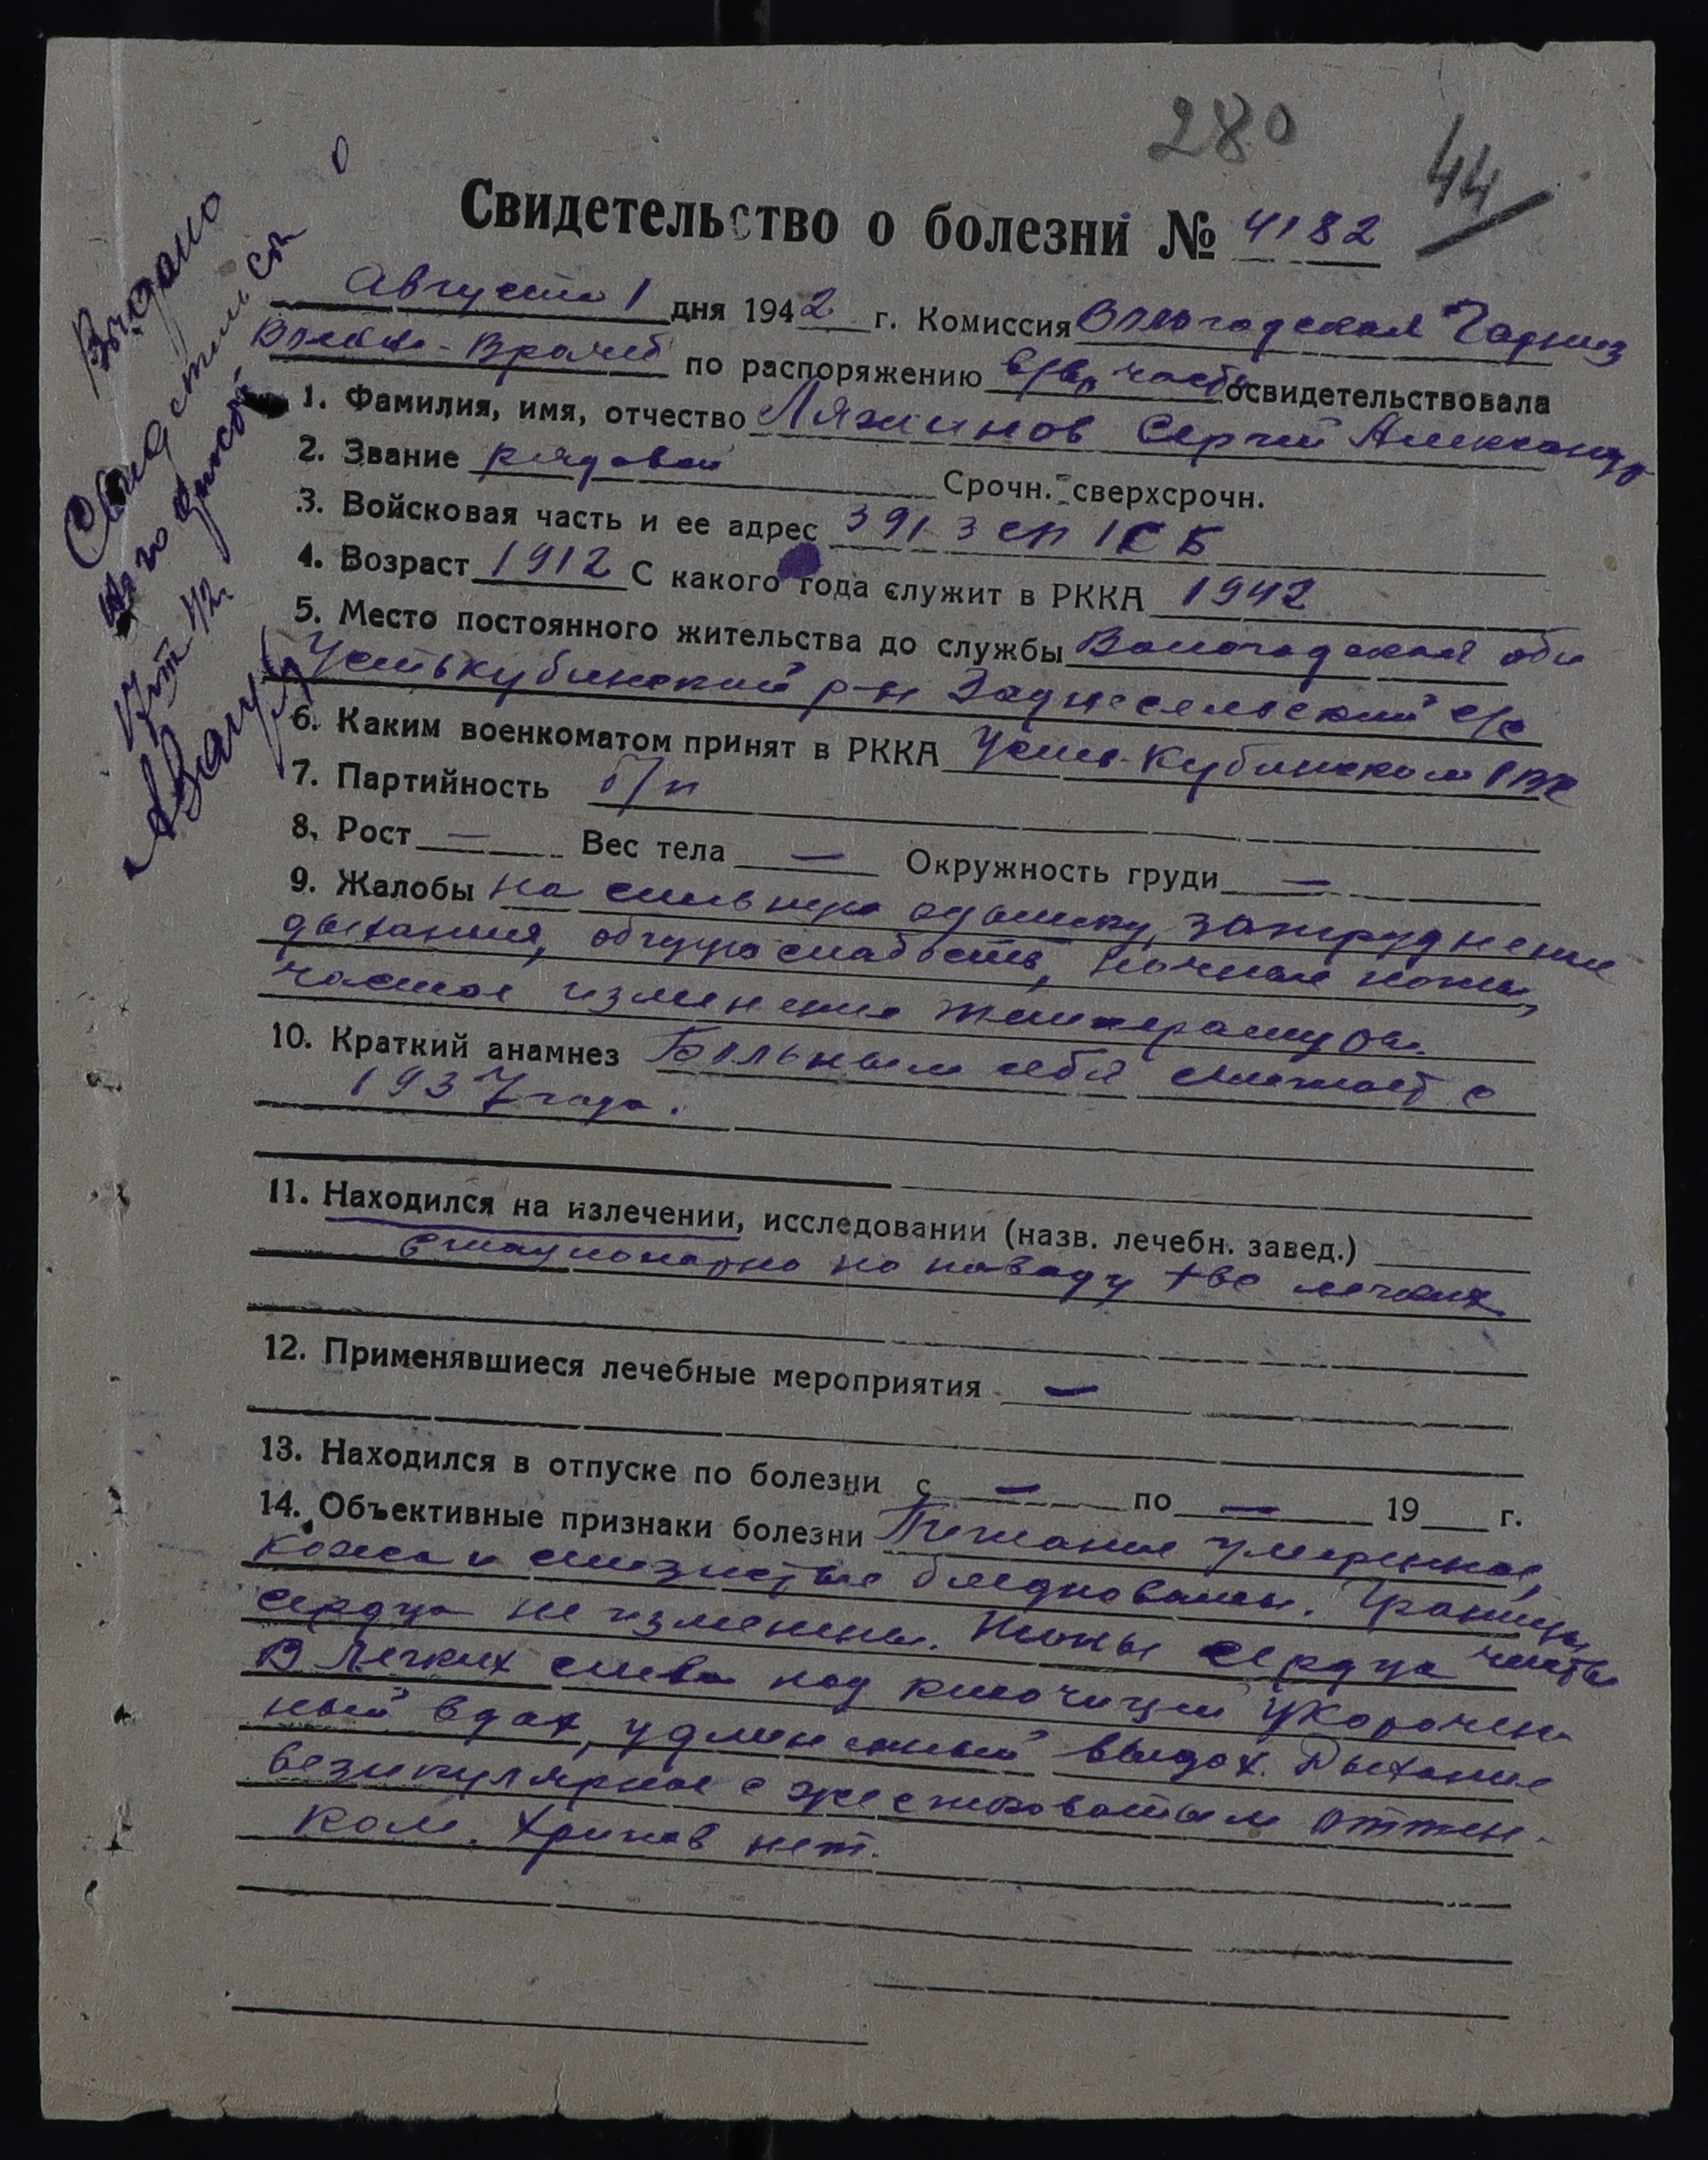 280
44
Свидетельство о болезни № 4182
Августа 1 дня 1942 г. Комиссия Вологодская Гарниз
Военно-Врачеб по распоряжению в/вр части освидетельствовала
1. Фамилия, имя, отчество Ляжинов Сергей Александр
2. Звание рядовой Срочн. - сверхсрочн.
3. Войсковая часть и ее адрес 391 зсп 1СБ
4. Возраст 1912 С какого года служит в РККА 1942
5. Место постоянного жительства до службы Вологодская обл
Устькубинский р-н Заднесельский с/с
6. Каким военкоматом принят в РККА Усть-Кубинским РВК
7. Партийность б/п
8. Рост — Вес тела — Окружность груди —
9. Жалобы на сильную одышку, затруднение
дыхания, общую слабость, ночные поты,
частое изменение температуры.
10. Краткий анамнез Больным себя считает с
1937 года.
11. Находился на излечении, исследовании (назв. лечебн. завед.)
стационарно по поводу tbc легких
12. Применявшиеся лечебные мероприятия —
13. Находился в отпуске по болезни с — по — 19 г.
14. Объективные признаки болезни Питание умеренное,
кожа и слизистые бледноваты. Границы
сердца не изменены. Тоны сердца чисты
В легких слева над ключицей укорочен-
ный вдох, удлиненный выдох. Дыхание
везикулярное с жестковатым оттен-
ком. Хрипов нет.
Выдано
Свид
17 42